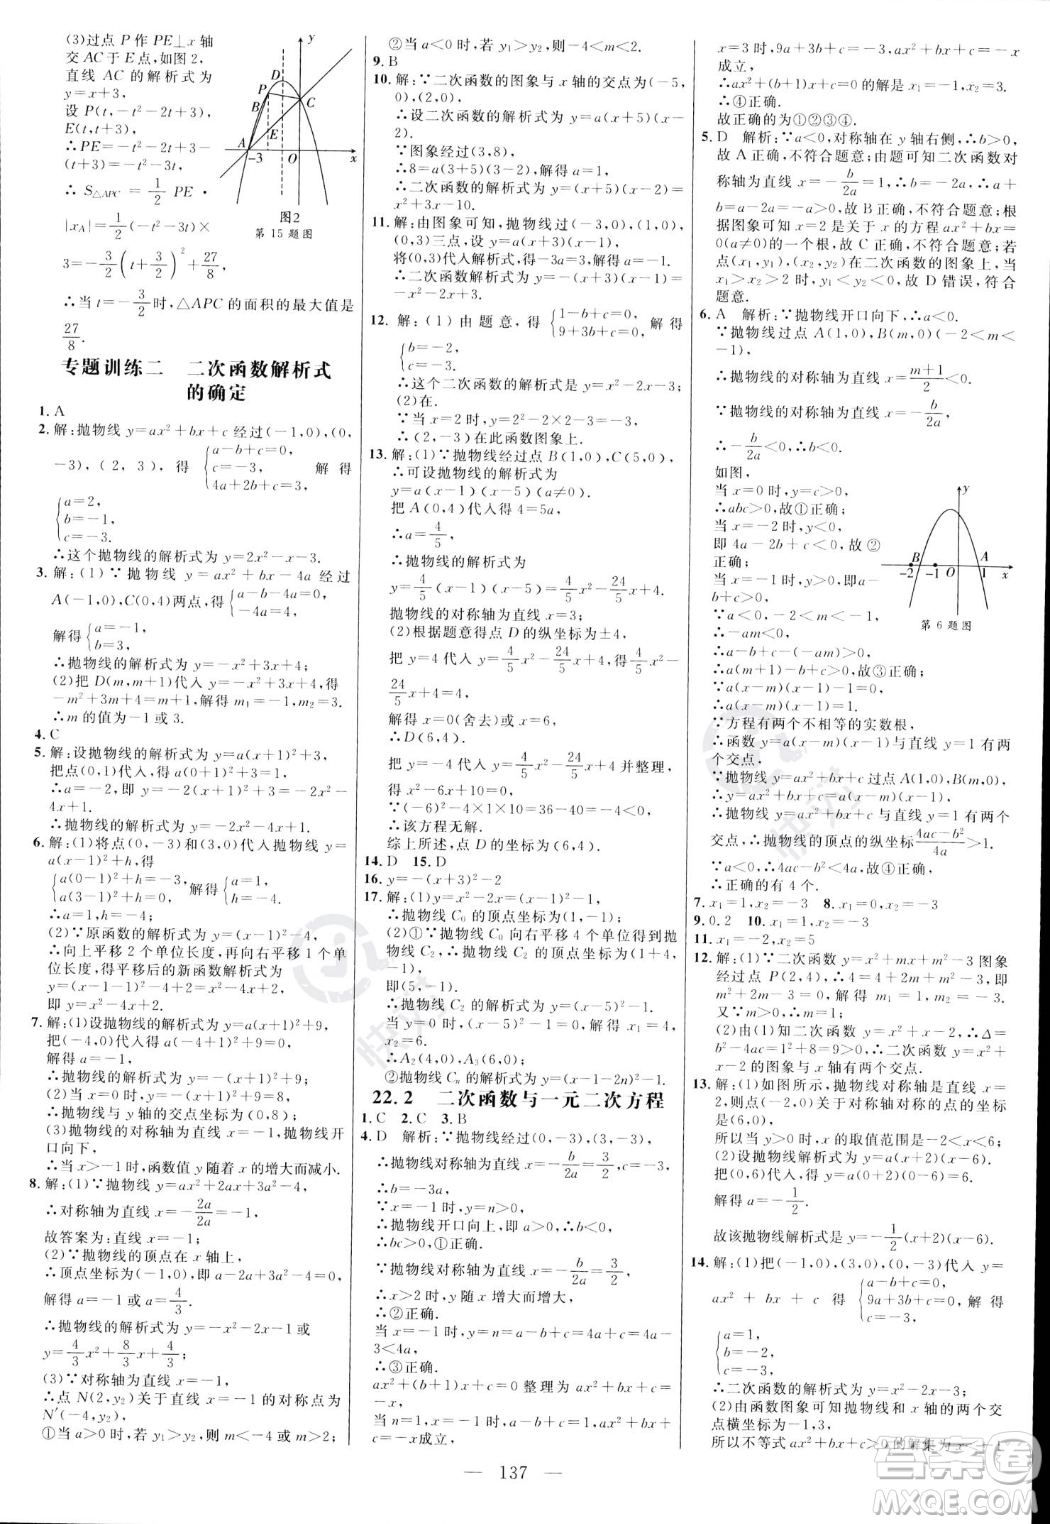 (3)过点 P 作 PE⊥x 轴
交 AC 于 E 点,如图2,
直线 AC 的解析式为
y=x+3,
设 P(t,-t²-2t+3),
E(t,t+3),
∴PE=-t²-3t,
∴S△APC=1/2 PE·
|xA|=1/2(-t²-3t)×
3=-3/2(t+3/2)²+27/8,
∴当 t=-3/2时,△APC 的面积的最大值是
27/8.
图2
第15题图
专题训练二 二次函数解析式
的确定
1. A
2. 解:抛物线 y=ax²+bx+c 经过(-1,0),(0,
-3),(2,3),得{a-b+c=0, c=-3, 4a+2b+c=3, 解得
{a=2, b=-1, c=-3.
∴这个抛物线的解析式为 y=2x²-x-3.
3. 解:(1)∵抛物线 y=ax²+bx-4a 经过
A(-1,0),C(0,4)两点,得{a-b-4a=0, -4a=4,
解得{a=-1, b=3,
∴抛物线的解析式为 y=-x²+3x+4.
(2)把 D(m,m+1)代入 y=-x²+3x+4,得
-m²+3m+4=m+1,解得 m₁=-1,m₂=3.
∴m 的值为-1或3.
4. C
5. 解:设抛物线的解析式为 y=a(x+1)²+3,
把点(0,1)代入,得 a(0+1)²+3=1.
解得 a=-2,∴y=-2(x+1)²+3=-2x²-
4x+1.
∴抛物线的解析式为 y=-2x²-4x+1.
6. 解:(1)将点(0,-3)和(3,0)代入抛物线 y=
a(x-1)²+h,得
{a(0-1)²+h=-3, a(3-1)²+h=0. 解得{a=1, h=-4.
∴a=1,h=-4;
(2)∵原函数解析式为 y=(x-1)²-4,
∴向上平移2个单位长度,再向右平移1个单
位长度,得平移后的新函数解析式为
y=(x-1-1)²-4+2=(x-2)²-2,
即 y=x²-4x+2.
7. 解:(1)设抛物线的解析式为 y=a(x+1)²+9,
把(-4,0)代入得 a(-4+1)²+9=0,
解得 a=-1,
∴抛物线的解析式为 y=-(x+1)²+9;
(2)当 x=0时,y=-(x+1)²+9=8,
∴抛物线与 y 轴的交点坐标为(0,8);
(3)抛物线的对称轴为直线 x=-1,抛物线开
口向下,
∴当 x>-1时,函数值 y 随着 x 的增大而减小.
8. 解:(1)∵抛物线 y=ax²+2ax+3a²-4,
∴对称轴为直线 x=-2a/2a=-1.
故答案为:直线 x=-1.
(2)∵抛物线的顶点在 x 轴上,
∴顶点坐标为(-1,0),即 a-2a+3a²-4=0,
解得 a=-1或 a=4/3,
∴抛物线的解析式为 y=-x²-2x-1或
y=4/3x²+8/3x+4/3;
(3)∵对称轴为直线 x=-1,
∴点 N(2,y₂)关于直线 x=-1的对称点为
N′(-4,y₂),
①当 a>0时,若 y₁>y₂,则 m<-4或 m>2;
②当 a<0时,若 y₁>y₂,则-4<m<2.
9. B
10. 解:∵二次函数的图象与 x 轴的交点为(-5,
0),(2,0),
∴设二次函数的解析式为 y=a(x+5)(x-
2).
∵图象经过(3,8),
∴8=a(3+5)(3-2),解得 a=1,
∴二次函数的解析式为 y=(x+5)(x-2)=
x²+3x-10.
11. 解:由图象可知,抛物线过(-3,0),(1,0),
(0,3)三点,设 y=a(x+3)(x-1),
将(0,3)代入解析式,得-3a=3,解得 a=-1.
∴二次函数解析式为 y=-(x+3)(x-1)=
-x²-2x+3.
12. 解:(1)由题意,得{1-b+c=0, 9+3b+c=0, 解得
{b=-2, c=-3.
∴这个二次函数的解析式是 y=x²-2x-3.
(2)在.
∵当 x=2时,y=2²-2×2-3=-3,
∴(2,-3)在此函数图象上.
13. 解:(1)∵抛物线经过点 B(1,0),C(5,0).
∴可设抛物线的函数解析式为
y=a(x-1)(x-5)(a≠0).
把 A(0,4)代入得4=5a,
∴a=4/5
∴抛物线的函数解析式为
y=4/5(x-1)(x-5)=4/5x²-24/5x+4.
抛物线的对称轴为直线 x=3;
(2)根据题意得点 D 的纵坐标为±4,
把 y=4代入 y=4/5x²-24/5x+4,得4/5x²-
24/5x=0.
解得 x=0(舍去)或 x=6,
∴D(6,4).
把 y=-4代入 y=4/5x²-24/5x+4并整理,
得 x²-6x+10=0.
∵(-6)²-4×1×10=36-40=-4<0,
∴该方程无解.
综上所述,点 D 的坐标为(6,4).
14. D 15. D
16. y=-(x+3)²-2
17. 解:(1)∵y=x²-2x=(x-1)²-1,
∴抛物线 C₀的顶点坐标为(1,-1).
(2)①∵抛物线 C₀向右平移4个单位得到抛
物线 C₂,∴抛物线 C₂的顶点坐标为(1+4,
-1),
即(5,-1).
∴抛物线 C₂的解析式为 y=(x-5)²-1.
当 y=0时,(x-5)²-1=0,解得 x₁=4,x₂
=6,
∴A₂(4,0),A₃(6,0).
②抛物线 Cₙ的解析式是 y=(x-1-2n)²-1.
22.2 二次函数与一元二次方程
1. C 2. C 3. B
4. D 解析:∵抛物线经过(0,-3),(3,-3),
∴抛物线对称轴为直线 x=-b/2a=3/2,
∴b=-3a,
∵抛物线开口向上,即 a>0,∴b<0,
∴bc>0,①正确.
∵抛物线对称轴为直线 x=-b/2a=3/2,
∴x>2时,y 随 x 增大而增大,
∴②正确.
当 x=-1时,y=a-b+c=4a+c=4a-
3<4a,
∴③正确.
ax²+(b-1)x+c=0整理为 ax²+bx+c
=x,
当 n=1,x=-1时,a-b+c=1,ax²+bx+c
=x 成立,
x=3时,9a+3b+c=3,ax²+bx+c=x
成立,
∴ax²+(b-1)x+c=0的解是 x₁=-1,x₂=3.
∴④正确.
故正确的为①②③④.
5. D 解析:∵a<0,对称轴在 y 轴右侧,∴b>0,
故 A 正确,不符合题意;由题可知二次函数对
称轴为直线 x=-b/2a=1,∴b=-2a,∴a+
b=a-2a=-a>0,故 B 正确,不符合题意;
根据图象可知 x=-2是关于 x 的方程 ax²+bx+c=
0(a≠0)的一个根,故 C 正确,不符合题意;若
点(x₁,y₁),(x₂,y₂)在二次函数的图象上,当
x₂>x₁>2时,y₂<y₁<0,故 D 错误,符合
题意.
6. A 解析:∵抛物线开口向下,∴a<0.
∵抛物线过点 A(1,0),B(m,0)(-2<m<
-1),
∴抛物线的对称轴为直线 x=(m+1)/2
<0,∴抛物线的对称轴为 x=-b/2a<0,
∴-b/2a<0,∴b<0,
如图,
当 x=0时,y=c>0,
∴abc>0,故①正确;
当 x=-2时,y<0,
即4a-2b+c<0,故②
正确;
当 x=-1时,y>0,即 a-
b+c>0,
∵a<0,-2<m<-1,
∴-am<0,
∴a-b+c-am>0,
∴a(m+1)-b+c>0,故③正确;
∵a(x-m)(x-1)-1=0,
∴a(x-m)(x-1)=1,
∵方程有两个不相等的实数根,
∴函数 y=a(x-m)(x-1)与直线 y=1有两
个交点,
∵抛物线 y=ax²+bx+c 过点 A(1,0),B(m,0).
∴y=ax²+bx+c=a(x-m)(x-1),
∴抛物线 y=ax²+bx+c 与直线 y=1有两个
交点,∴抛物线的顶点的纵坐标(4ac-b²)/4a>1.
∵a<0,∴4ac-b²<4a,故④正确.
∴正确的有4个.
第6题图
7. x₁=1,x₂=-3 8. x₁=0,x₂=-3
9. 0,2 10. x₁=1,x₂=-3
11. x₁=-2,x₂=5
12. 解:(1)∵二次函数 y=x²+mx+m²-3图象
经过点 P(2,4),∴4=4+2m+m²-3,
即 m²+2m-3=0,解得 m₁=1,m₂=-3.
又∵m>0,∴m=1;
(2)由(1)知二次函数 y=x²+x-2,∴Δ=
b²-4ac=1²+8=9>0,∴二次函数 y=x²+
x-2的图象与 x 轴有两个交点.
13. 解:(1)如图所示,抛物线对称轴是直线 x=
2,则点(-2,0)关于对称轴对称的点的坐标
是(6,0),
所以当 y<0时,x 的取值范围是-2<x<6;
(2)设抛物线解析式为 y=a(x+2)(x-6),
把(0,6)代入,得 a(0+2)(0-6)=6,
解得 a=-1/2.
故该抛物线解析式为 y=-1/2(x+2)(x-6).
14. 解:(1)把(-1,0),(3,0),(0,-3)代入 y=
ax²+bx+c 得{a-b+c=0, 9a+3b+c=0, c=-3. 解得
{a=1, b=-2, c=-3.
∴二次函数的解析式为 y=x²-2x-3;
(2)由函数图象可知抛物线和 x 轴的两个交
点横坐标为-1,3,
所以不等式 ax²+bx+c>0的解集为 x<-1
— 137 —
答案圈
MXQE.COM